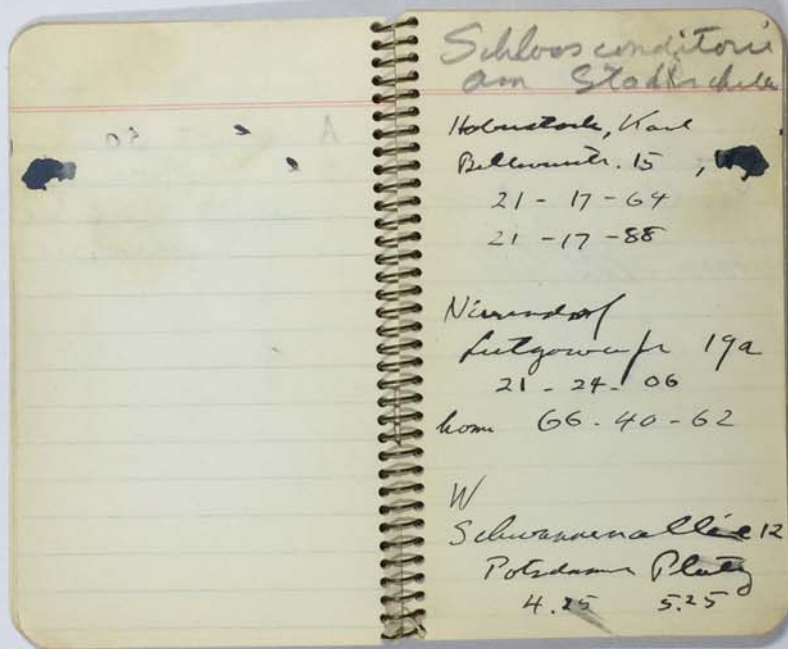 Schlossconditorei
am Stadtschloss
Haberstock, Karl
Bellevuestr. 15, W
21 - 17 - 64
21 - 17 - 88
Nierendorf
Lützowufer 19a
21 - 24 - 06
home 66 - 40 - 62
W
Schwanenallee 12
Potsdamer Platz
4.25 5.25